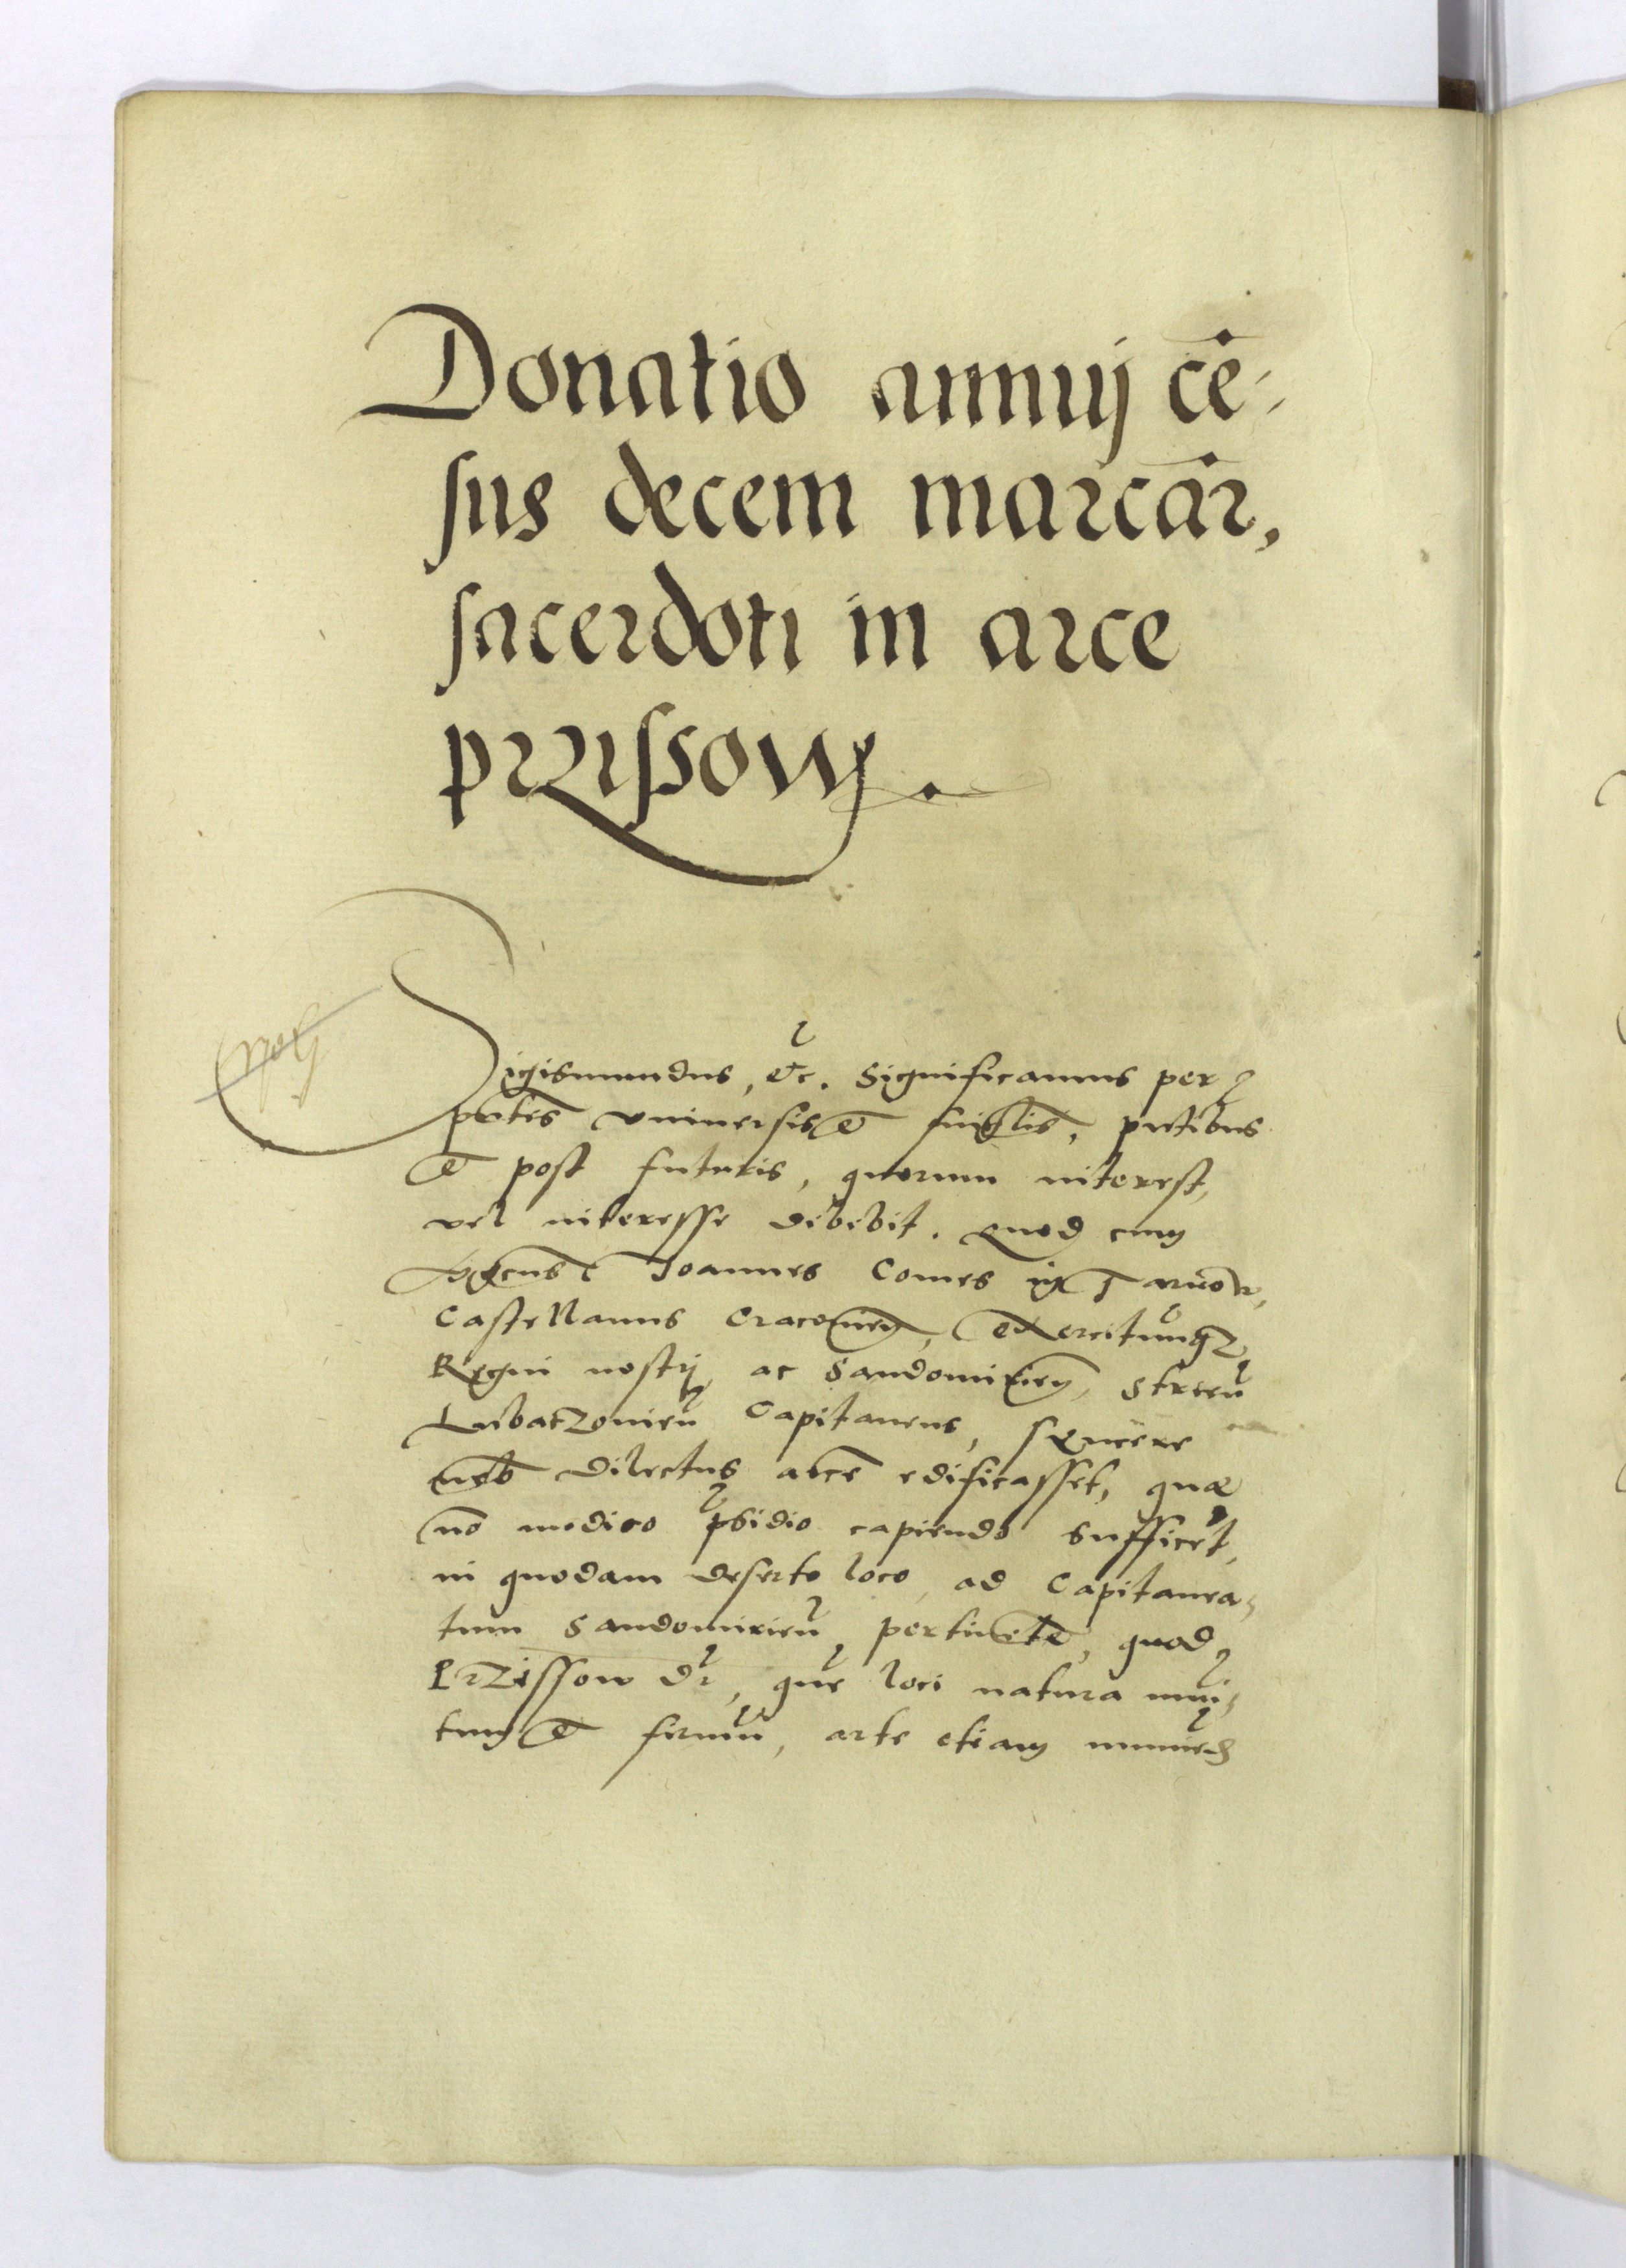 Donatio annuij cē-
sus decem marcar̄,
sacerdoti in arce
przissowij.
Sigismundus, etc. Significamus per
pn̄tes vniuersis et sing̃lis, pn̄tibus
et post futuris, quorum interest,
vel interesse debebit. Quod cum
Joannes Comes in Tarnow,
Castellanus Cracovien, exercituumqꝫ
Regni nostrj, ac Sandomirien, Strien̄
Lubaczovien̄ Capitaneus, syncere
nob̄ dilectus arcē edificasset, quæ
nō modico p̄sidio capiendo sufficeret,
in quodam deserto loco, ad Capitanea-
tum Sandomirien̄ pertinētē, quod
Przissow dr̄, que loci natura muni-
tum et firmū, arte etiam